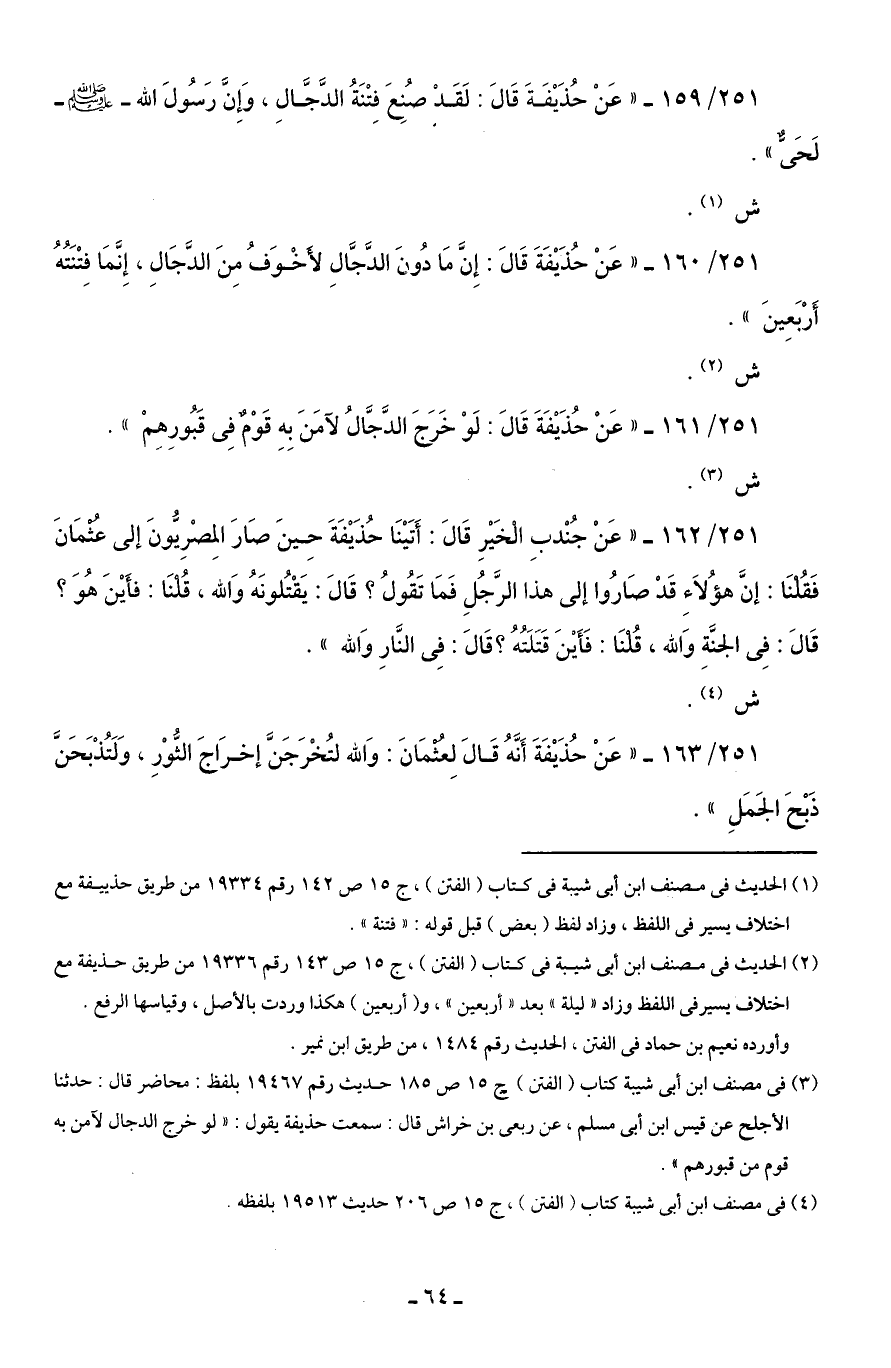 ٢٥١/ ١٥٩ ـ « عَنْ حُذَيْفَةَ قَالَ : لَقَدْ صُنِعَ فِتْنَةُ الدَّجَّالِ ، وَإِنَّ رَسُولَ الله ـ ﷺ ـ
لَحَىٌّ » .
ش (١) .
٢٥١/ ١٦٠ ـ « عَنْ حُذَيْفَةَ قَالَ : إِنَّ مَا دُونَ الدَّجَّالِ لأَخْوَفُ مِنَ الدَّجَالِ ، إِنَّمَا فِتْنَتُهُ
أَرْبَعِينَ » .
ش (٢) .
٢٥١/ ١٦١ ـ « عَنْ حُذَيْفَةَ قَالَ : لَوْ خَرَجَ الدَّجَّالُ لآمَنَ بِهِ قَوْمٌ فِى قَبُورِهِمْ » .
ش (٣) .
٢٥١/ ١٦٢ ـ « عَنْ جُنْدبِ الْخَيْرِ قَالَ : أَتَيْنَا حُذَيْفَةَ حِينَ صَارَ المِصْرِيُّونَ إلى عثْمَانَ
فَقُلْنَا : إنَّ هؤُلاَءِ قَدْ صَارُوا إلى هذا الرَّجُلِ فَمَا تَقُولُ ؟ قَالَ : يَقْتُلونَهُ وَالله ، قُلْنَا : فأَيْنَ هُوَ ؟
قَالَ : فِى الجنَّةِ وَالله ، قُلْنَا : فَأَيْنَ قَتَلَتُهُ ؟ قَالَ : فِى النَّارِ وَالله » .
ش (٤) .
٢٥١/ ١٦٣ ـ « عَنْ حُذَيْفَةَ أَنَّهُ قَالَ لِعُثْمَانَ : وَالله لتُخْرَجَنَّ إخرَاجَ الثُّوْرِ ، وَلَتُذْبَحَنَّ
ذَبْحَ الجَمَلِ » .
(١) الحديث فى مصنف ابن أبى شيبة فى كتاب ( الفتن ) ، ج ١٥ ص ١٤٢ رقم ١٩٣٣٤ من طريق حذيفة مع
اختلاف يسير فى اللفظ ، وزاد لفظ ( بعض ) قبل قوله : « فتنة » .
(٢) الحديث فى مصنف ابن أبى شيبة فى كتاب ( الفتن ) ، ج ١٥ ص ١٤٣ رقم ١٩٣٣٦ من طريق حذيفة مع
اختلاف يسيرفى اللفظ وزاد « ليلة » بعد « أربعين » ، و( أربعين ) هكذا وردت بالأصل ، وقياسها الرفع .
وأورده نعيم بن حماد فى الفتن ، الحديث رقم ١٤٨٤ ، من طريق ابن نمير .
(٣) فى مصنف ابن أبى شيبة كتاب ( الفتن ) ج ١٥ ص ١٨٥ حديث رقم ١٩٤٦٧ بلفظ : محاضر قال : حدثنا
الأجلح عن قيس ابن أبى مسلم ، عن ربعى بن خراش قال : سمعت حذيفة يقول : « لو خرج الدجال لآمن به
قوم من قبورهم » .
(٤) فى مصنف ابن أبى شيبة كتاب ( الفتن ) ، ج ١٥ ص ٢٠٦ حديث ١٩٥١٣ بلفظه .
ـ ٦٤ ـ